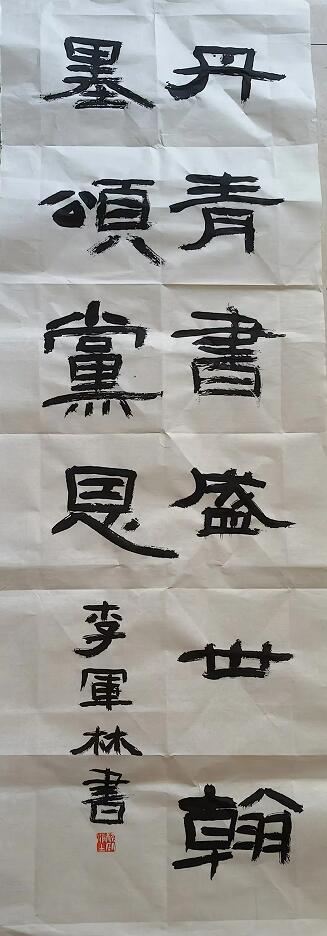 丹青書盛世翰
墨頌黨恩
李軍林書